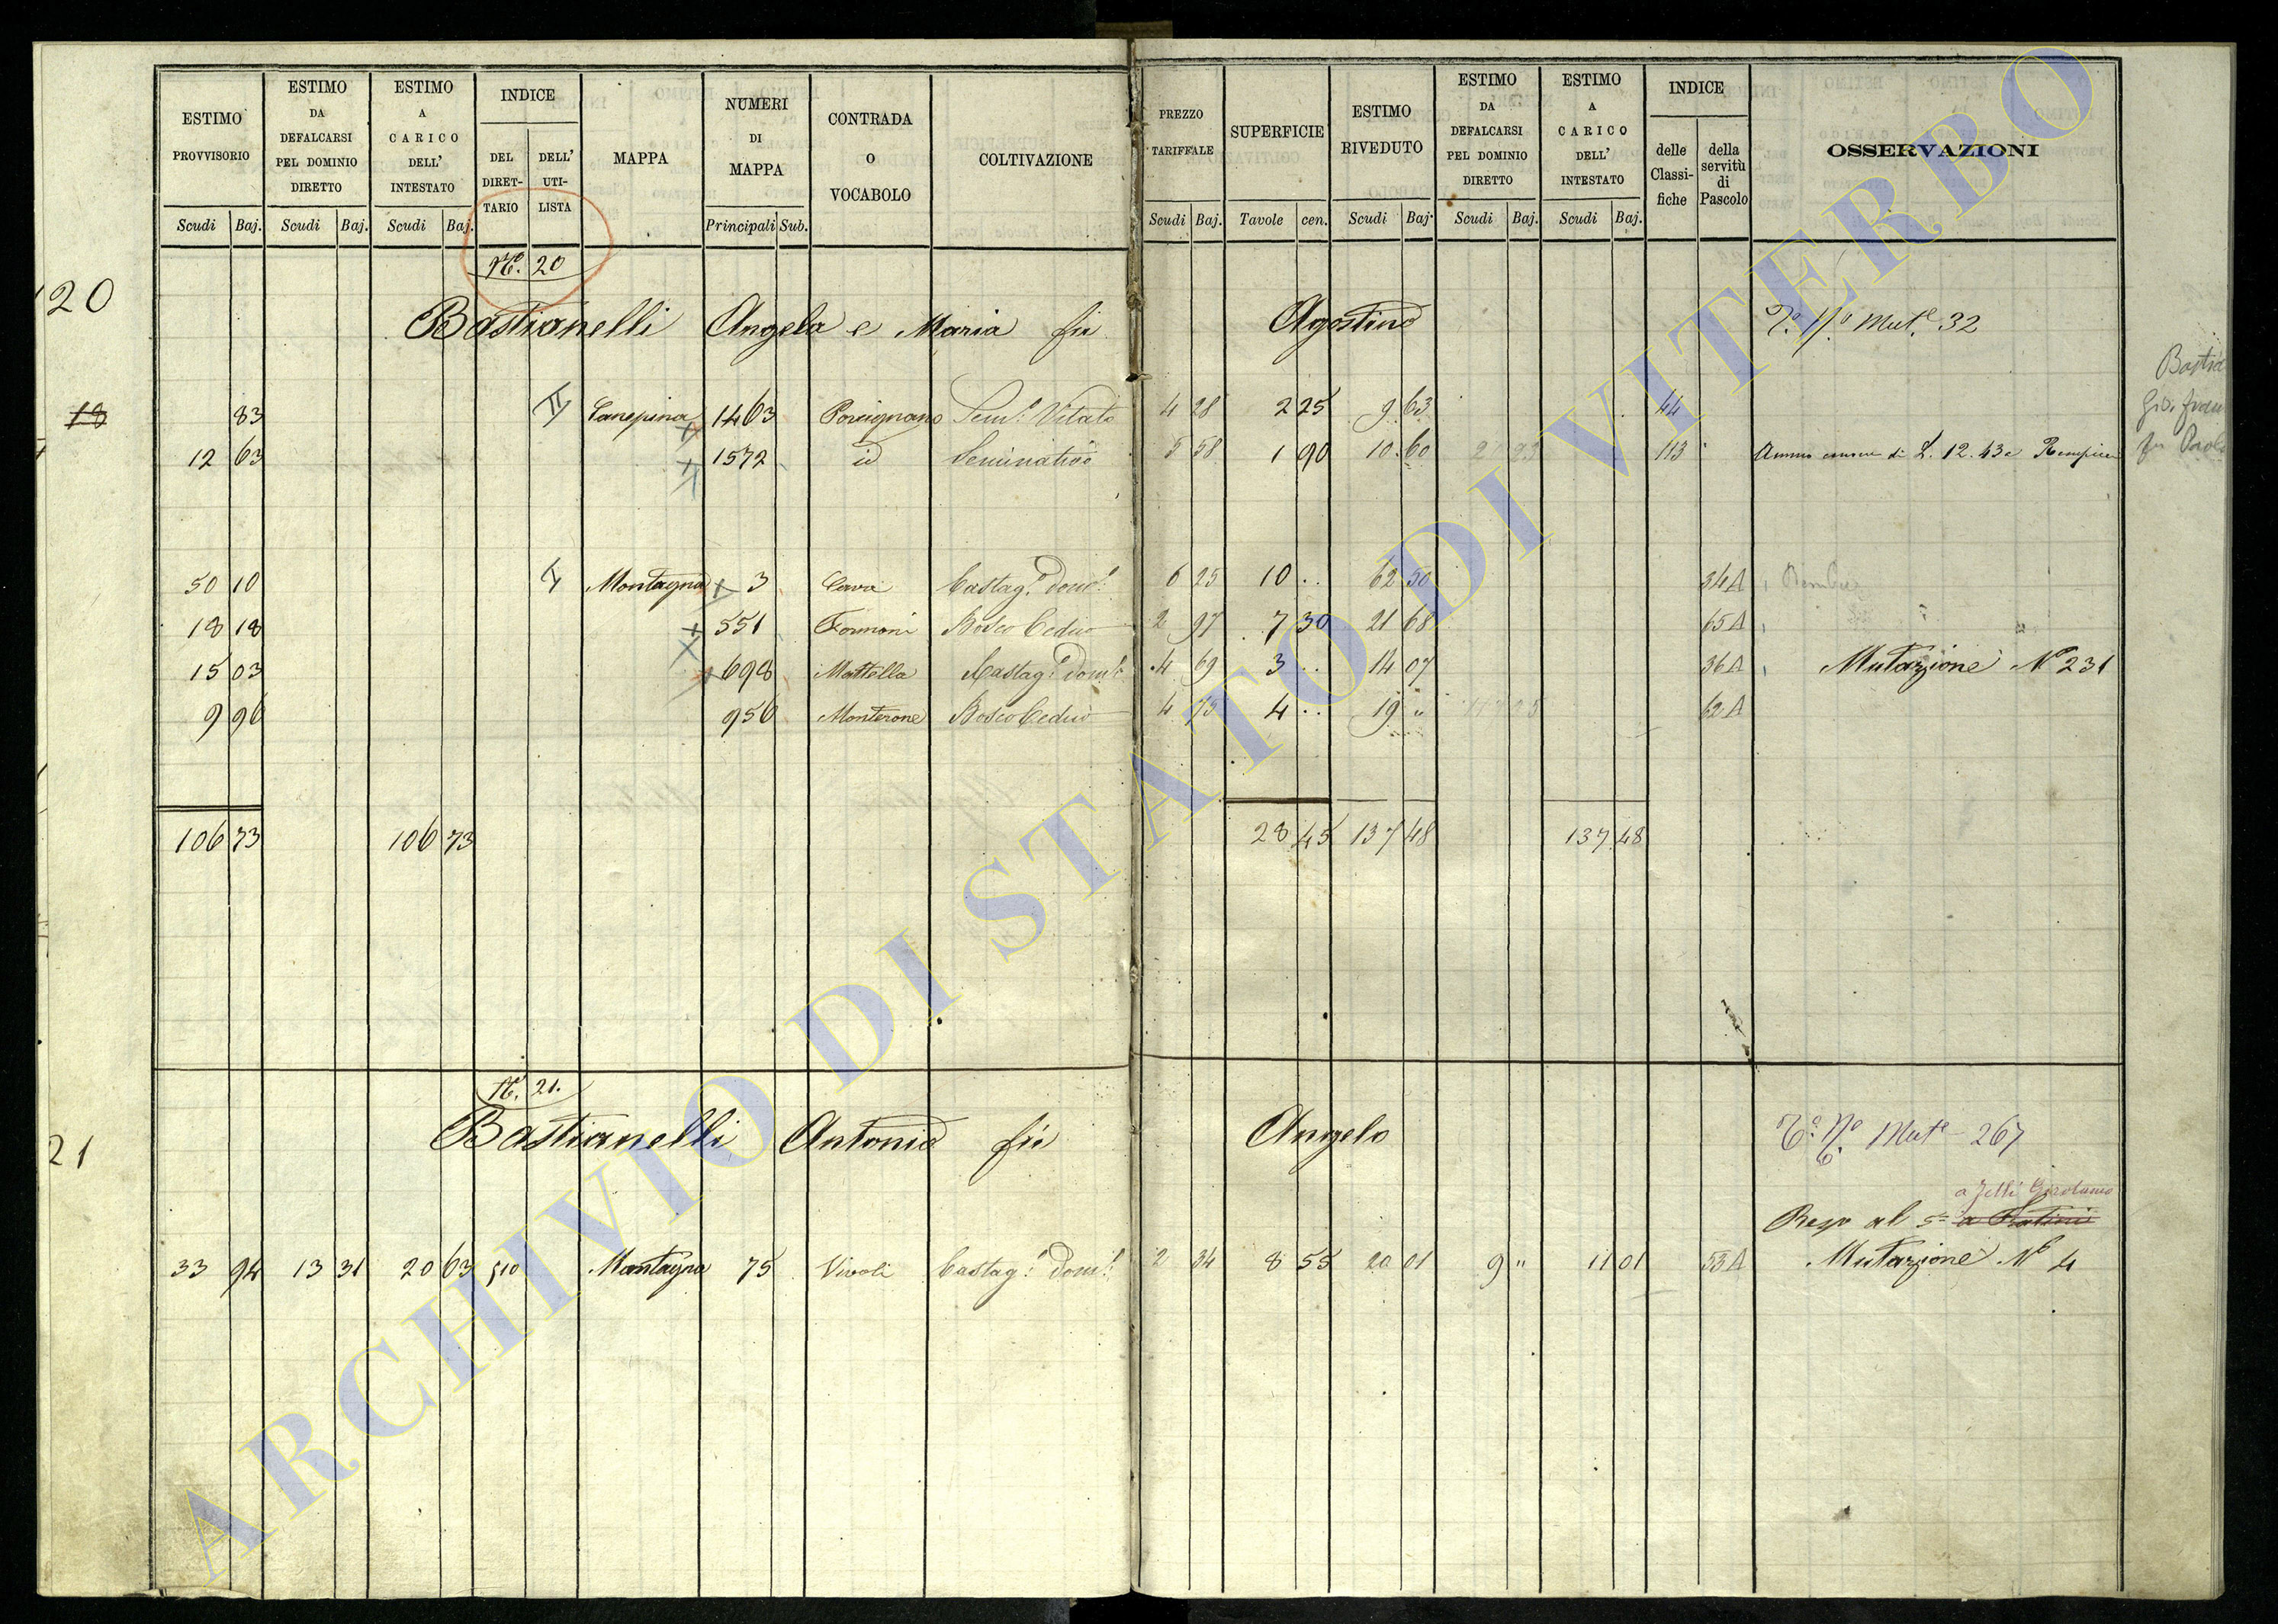 ESTIMO PROVVISORIO Scudi Baj. ESTIMO DA DEFALCARSI PEL DOMINIO DIRETTO Scudi Baj. ESTIMO A CARICO DELL' INTESTATO Scudi Baj. INDICE DEL DIRET- TARIO DELL' UTI- LISTA MAPPA NUMERI DI MAPPA Principali Sub. CONTRADA O VOCABOLO COLTIVAZIONE PREZZO TARIFFALE Scudi Baj. SUPERFICIE Tavole cen. ESTIMO RIVEDUTO Scudi Baj. ESTIMO DA DEFALCARSI PEL DOMINIO DIRETTO Scudi Baj. ESTIMO A CARICO DELL' INTESTATO Scudi Baj. INDICE delle Classi- fiche della servitù di Pascolo OSSERVAZIONI
N.º 20
20 Bastianelli Angela e Maria fu Agostino Mut.e 32
18 83 II Canepina 1463 Porcignano Sem.º Vitato 4 28 2 25 9 63 44
12 63 1572 id Seminativo 5 58 1 90 10 60 113
50 10 Montagna 3 Cava Castag.º dom.º 6 25 10 .. 62 50 34A
18 18 551 Formoni Bosco Ceduo 2 97 7 30 21 68 65A
15 03 698 Mattella Castag.º dom.º 4 69 3 .. 14 07 36A Mutazione Nº 231
9 96 956 Monterone Bosco Ceduo 4 75 4 .. 19 " 62A
106 73 106 73 28 45 137 48 137 48
N.º 21.
21 Bastianelli Antonio fu Angelo Mut.e 267
a Jelli Girolamo
al
33 94 13 31 20 63 510 Montagna 75 Vivoli Castag.º dom.º 2 34 8 55 20 01 9 " 11 01 53A Mutazione Nº 4
ARCHIVIO DI STATO DI VITERBO